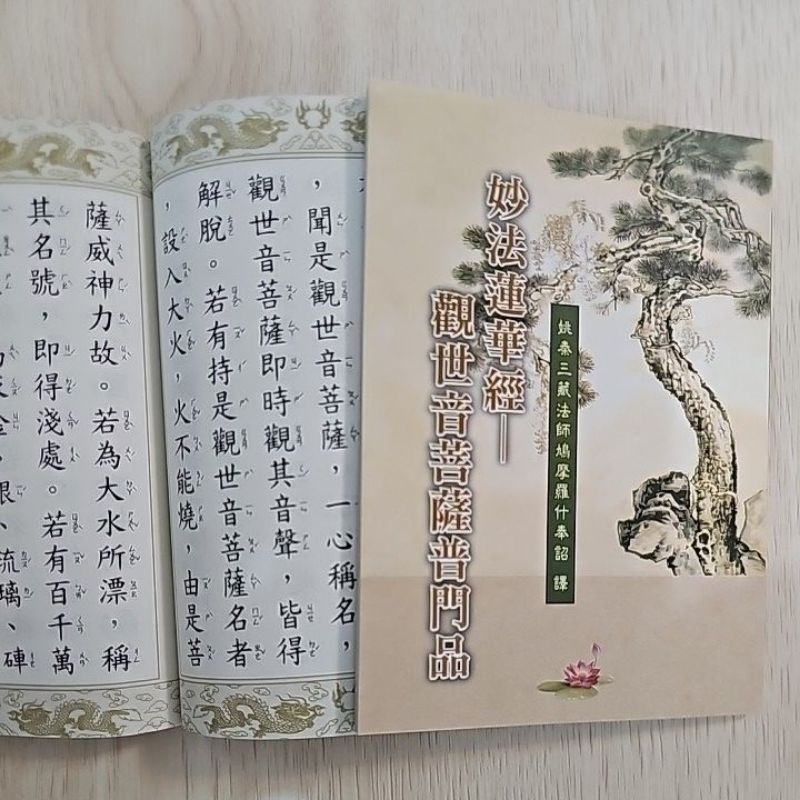 妙法蓮華經—
觀世音菩薩普門品
姚秦三藏法師鳩摩羅什奉詔 譯
，聞是觀世音菩薩，一心稱名，
觀世音菩薩即時觀其音聲，皆得
解脫。若有持是觀世音菩薩名者
，設入大火，火不能燒，由是菩
薩威神力故。若為大水所漂，稱
其名號，即得淺處。若有百千萬
金、銀、琉璃、硨